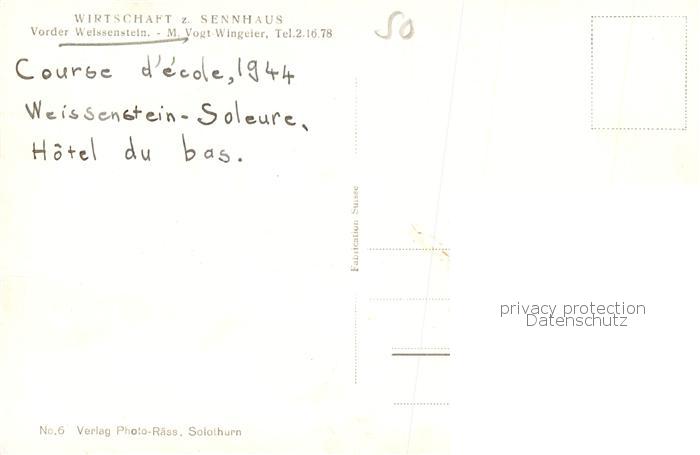 WIRTSCHAFT z. SENNHAUS
Vorder Weissenstein. - M. Vogt-Wingeier, Tel.2.16.78
SO
Course d'école, 1944
Weissenstein-Soleure,
Hôtel du bas.
Fabrication Suisse
privacy protection
Datenschutz
No.6 Verlag Photo-Räss, Solothurn